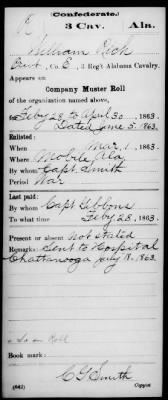 (Confederate.)
R 3 Cav. Ala.
William Rich
Pvt, Co. E, 3 Reg't Alabama Cavalry.
Appears on
Company Muster Roll
of the organization named above,
for Feby 28 to April 30, 1863.
Dated June 5, 1863
Enlisted:
When Mar 1, 1863.
Where Mobile Ala
By whom Capt Smith
Period War
Last paid:
By whom Capt Gibbons
To what time Feby 28, 1863.
Present or absent Not stated
Remarks: Sent to Hospital
Chattanooga July 18, 1863.
Book mark:
C G Smith
(642) Copyist